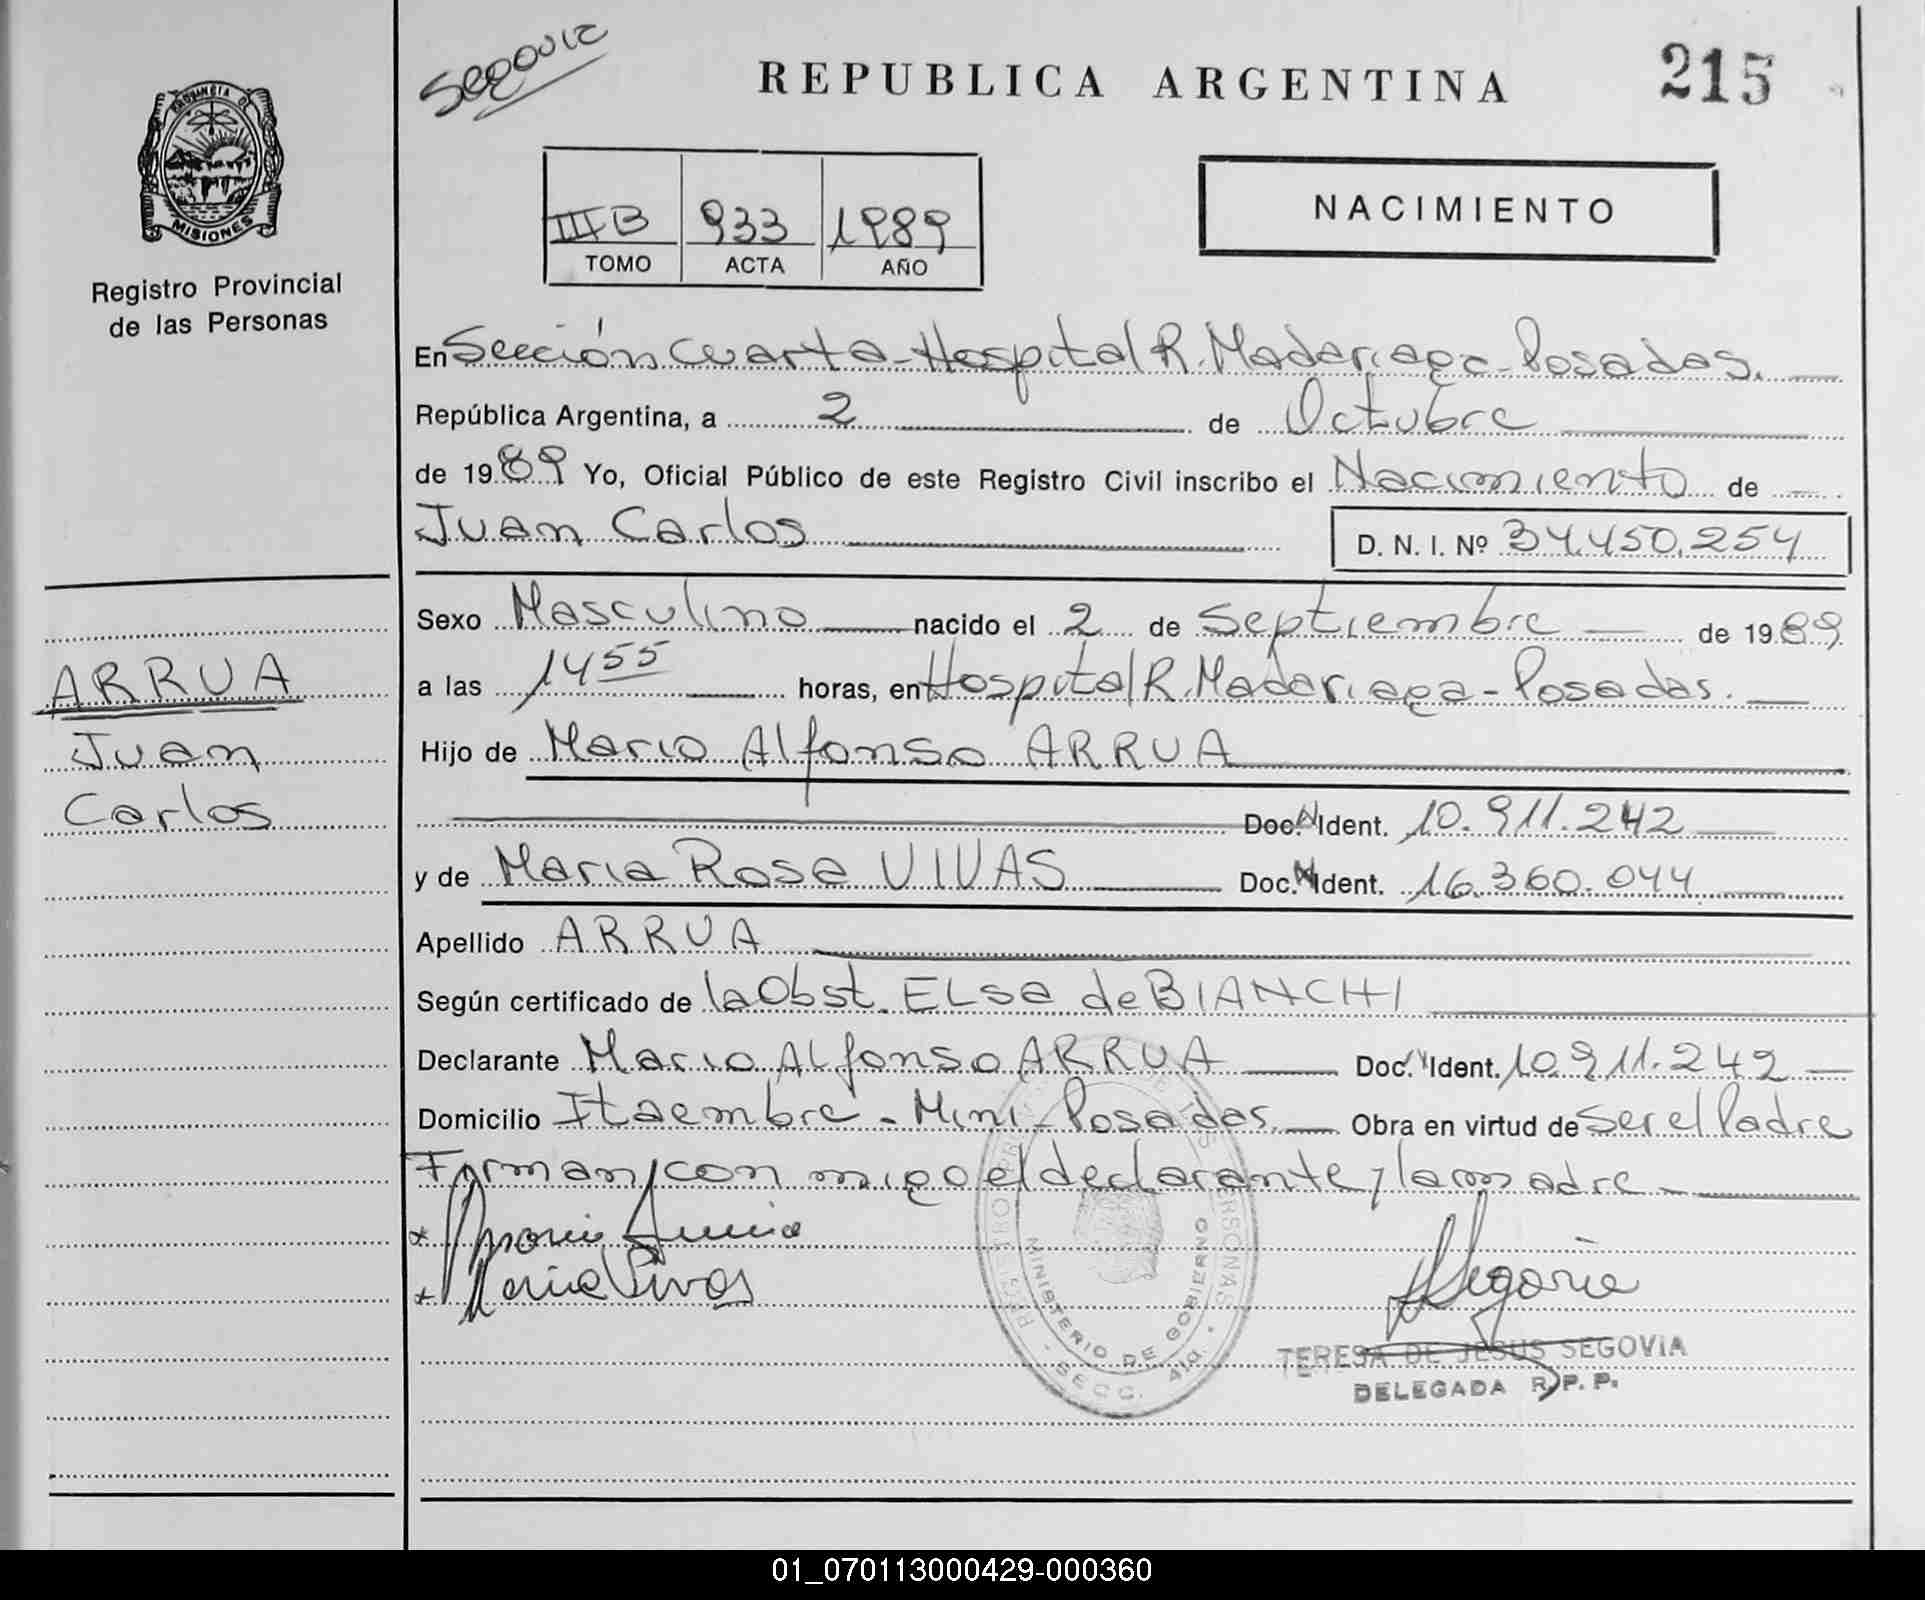 Segovia
REPUBLICA ARGENTINA
215
PROVINCIA DE
MISIONES
Registro Provincial
de las Personas
IIIB 933 1989
TOMO ACTA AÑO
NACIMIENTO
En Sección Cuarta - Hospital R. Madariaga - Posadas.
República Argentina, a 2 de Octubre
de 1989 Yo, Oficial Público de este Registro Civil inscribo el Nacimiento de
Juan Carlos D. N. I. Nº 34.450.254
Sexo Masculino nacido el 2 de Septiembre de 1989
a las 1455 horas, en Hospital R. Madariaga - Posadas.
Hijo de Mario Alfonso ARRUA
Doc. Ident. 10.911.242
y de Maria Rosa VIVAS Doc. Ident. 16.360.044
Apellido ARRUA
Según certificado de la Obst. ELsa de BIANCHI
Declarante Mario ALfonso ARRUA Doc. Ident. 10.911.242
Domicilio Itaembre - Mini - Posadas. Obra en virtud de Ser el Padre
Forman con migo el declarante y la madre
ARRUA
Juan
Carlos
Maria Vivas
Segovia
REGISTRO PROVINCIAL DE LAS PERSONAS
MINISTERIO DE GOBIERNO
SECC. 4ta.
TERESA DE JESUS SEGOVIA
DELEGADA R.P.P.
01_070113000429-000360